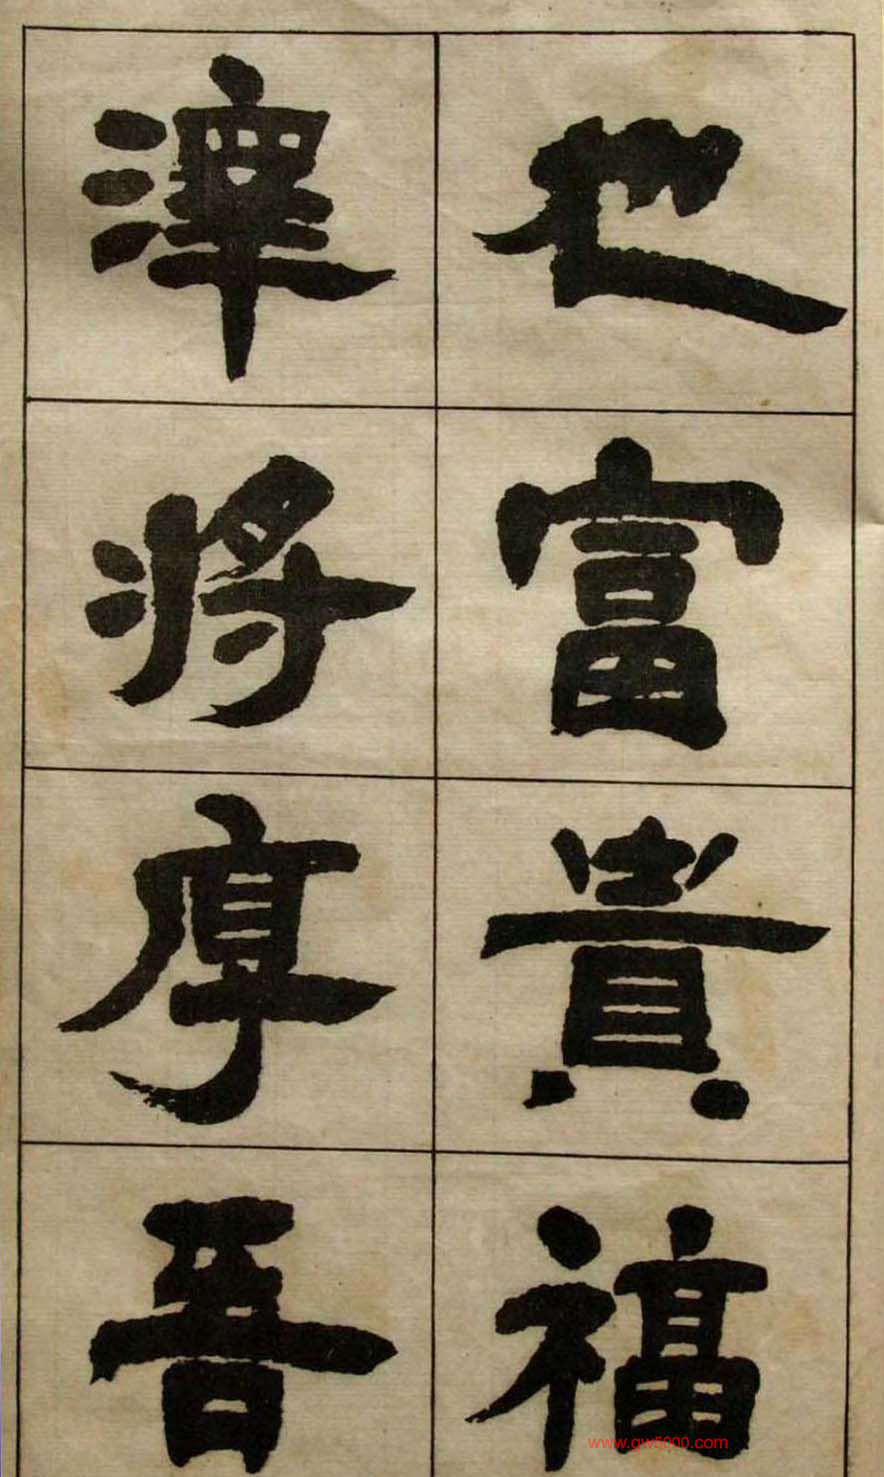 也富貴福
澤将厚吾
www.gw5000.com